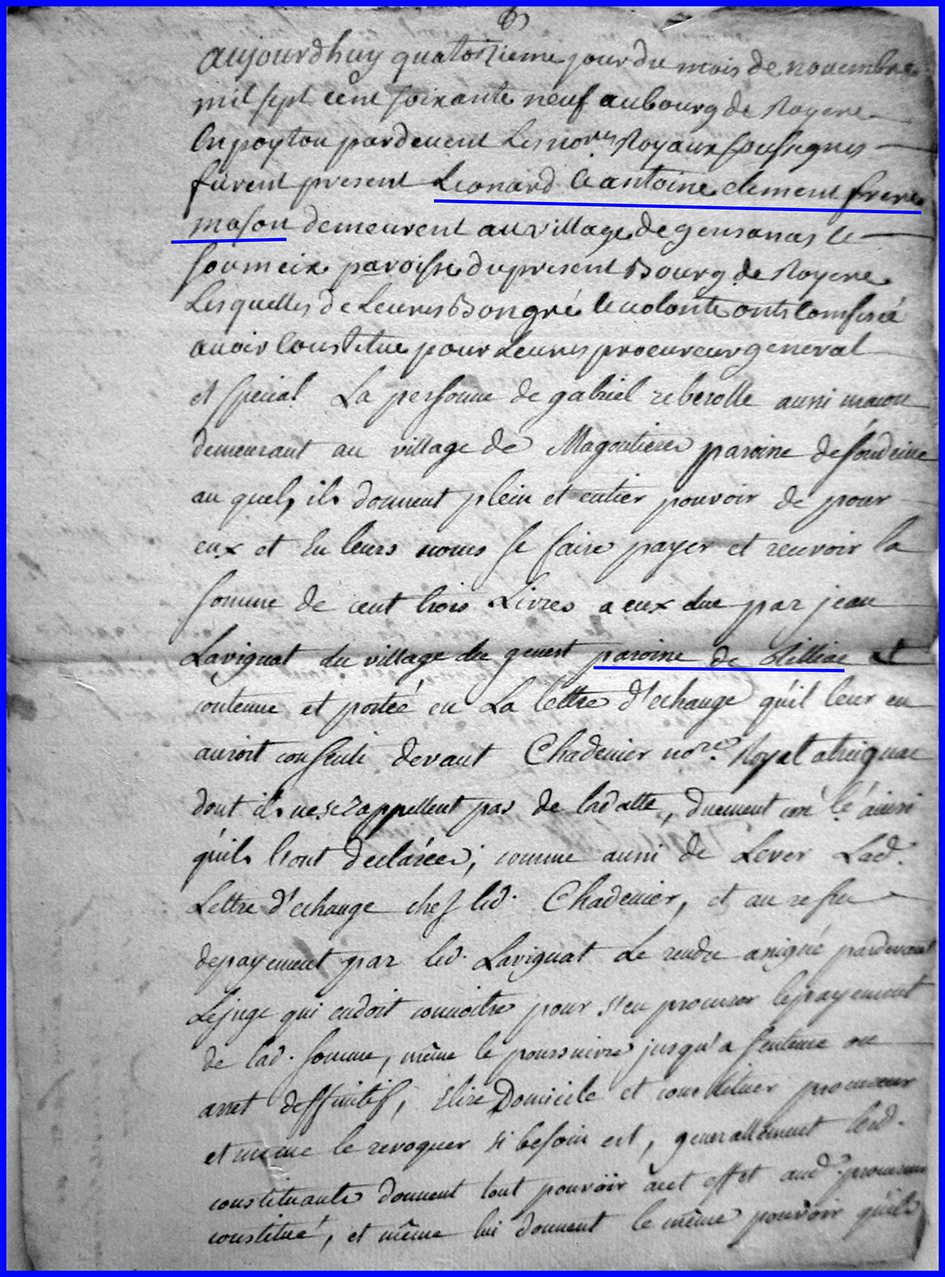 aujourdhuy quatorzieme jour du mois de novembre
mil sept cent soixante neuf au bourg de Royere
En poytou pardevent Les no.res Royaux soussignes
furent present Leonard & antoine clement frere
mason demeurent au village de gensanas &
soumeix paroisse du present Bourg de Royere
Lesquelles de Leures Bon gré & volonte onts confessé
avoir constitue pour Leures procureur general
et spécial La personne de gabriel reberolle aussi macon
demeurant au village de Magoutiere paroisse de soudeine
au quel, ils donnent plein et entier pouvoir de pour
eux et En leurs noms se faire payer et recevoir la
somme de cent trois Livres a eux due par jean
Lavignat du village du genest paroisse de et
contenue et portée en La lettre d'echange qu'il leur en
auroit consenti devant Chadenier no.re Royal
dont ils ne se rappellent pas de lad datte, duement con.lé ainsi
qu'ils l'ont declarée; comme aussi de Lever Lad.
Lettre d'echange chez led. Chadenier, et au refus
de payement par led. Lavignat Le rendre assigné pardevant
Le juge qui en doit connoitre pour s'en procurer le payement
de lad. somme, même le poursuivre jusqu'a sentence ou
arret deffinitif, Elire Domicile et constituer procureur
et même le revoquer si besoin est, generallement lesd.
constituants donnent tout pouvoir à cet effet aud. procureur
constitué, et même lui donnent le même pouvoir qu'ils